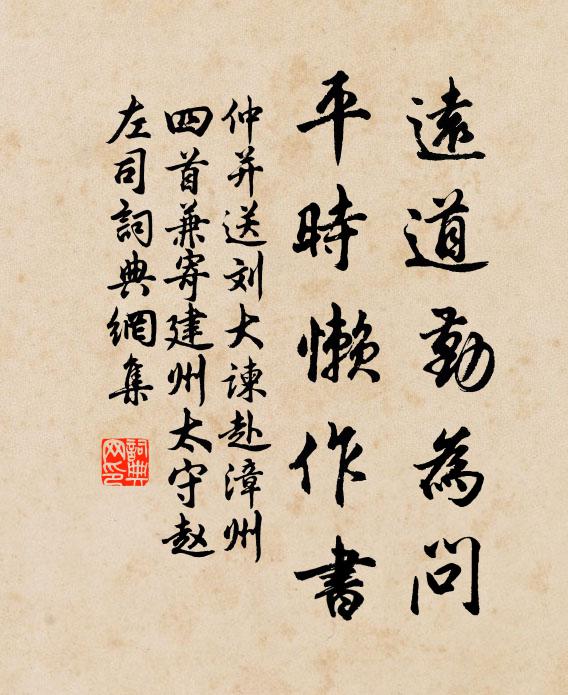 遠道勤為問
平時懶作書
仲并送刘大諫赴漳州
四首兼寄建州太守赵
左司詞典網集
詞典网印